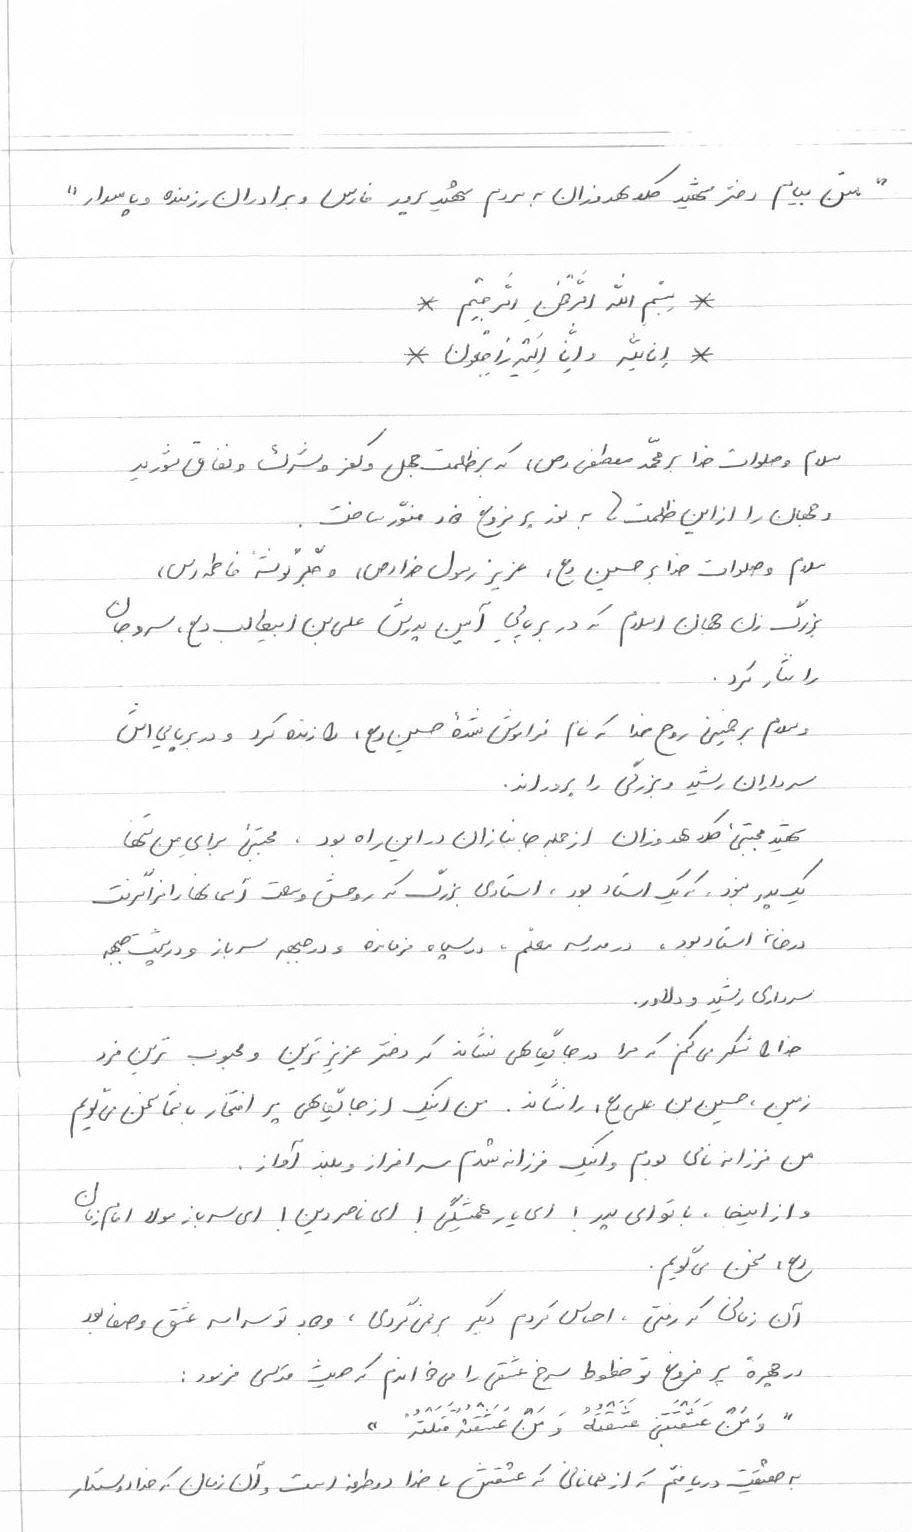 " متن پیام دختر شهید کلاهدوزان به مردم شهید پرور فارس و برادران رزمنده و پاسدار "
* بِسْمِ اللّهِ الرَّحْمٰنِ الرَّحِیْمِ *
* اِنا لِلّٰهِ وَ اِنّا اِلَیْهِ رٰاجِعُون *
سلام و صلوات خدا بر محمّد مصطفی (ص)، که بر ظلمت جهل و کفر و شرک و نفاق شورید
و جهان را از این ظلمت‌ها به نور پر فروغ خود منوّر ساخت .
سلام و صلوات خدا بر حسین (ع)، عزیز رسول خدا (ص)، و جگرگوشۀ فاطمه (س)،
بزرگ زن جهان اسلام که در برپایی آیین پدرش علی بن ابیطالب (ع)، سر و جان
را نثار کرد .
و سلام بر خمینی روح خدا که نام فراموش شدۀ حسین (ع)، را زنده کرد و در برپایی اش
سرداران رشید و بزرگی را پروراند.
شهید مجتبیٰ کلاهدوزان از جمله جانبازان در این راه بود ، مجتبیٰ برای من تنها
یک پدر نبود ، که یک استاد بود ، استادی بزرگ که روحش وسعت آسمانها را فرا گرفت
در خانه استاد بود ، در مدرسه معلم ، در سپاه فرمانده و در جبهه سرباز و در پشت جبهه
سرداری رشید و دلاور.
خدا را شکر می کنم که مرا در جایگاهی نشاند که دختر عزیزترین و محبوب ترین فرد
زمین ، حسین بن علی (ع)، را نشاند . من اینک از جایگاهی پر افتخار با شما سخن می گویم
من فرزانه نامی بودم و اینک فرزانه شدم سر افراز و بلند آواز .
و از اینجا ، با تو ای پدر ! ای یار همیشگی ! ای ناصر دین ! ای سرباز مولا امام زمان
(ع)، سخن می گویم .
آن زمانی که رفتی ، احساس کردم دیگر برنمی گردی ، وجود تو سراسر عشق و صفا بود
در چهرۀ پر فروغ تو خطوط سرخ عشقی را می خواندم که حدیث قدسی فرمود :
" وَ مَنْ عَشَقَنی عَشَقْتُهُ وَ مَنْ عَشَقْتُهُ قَتَلْتُهُ "
به حقیقت دریافتم که از همانانی که عشقش با خدا دو طرفه است و آن زمان که خدا دوستدار